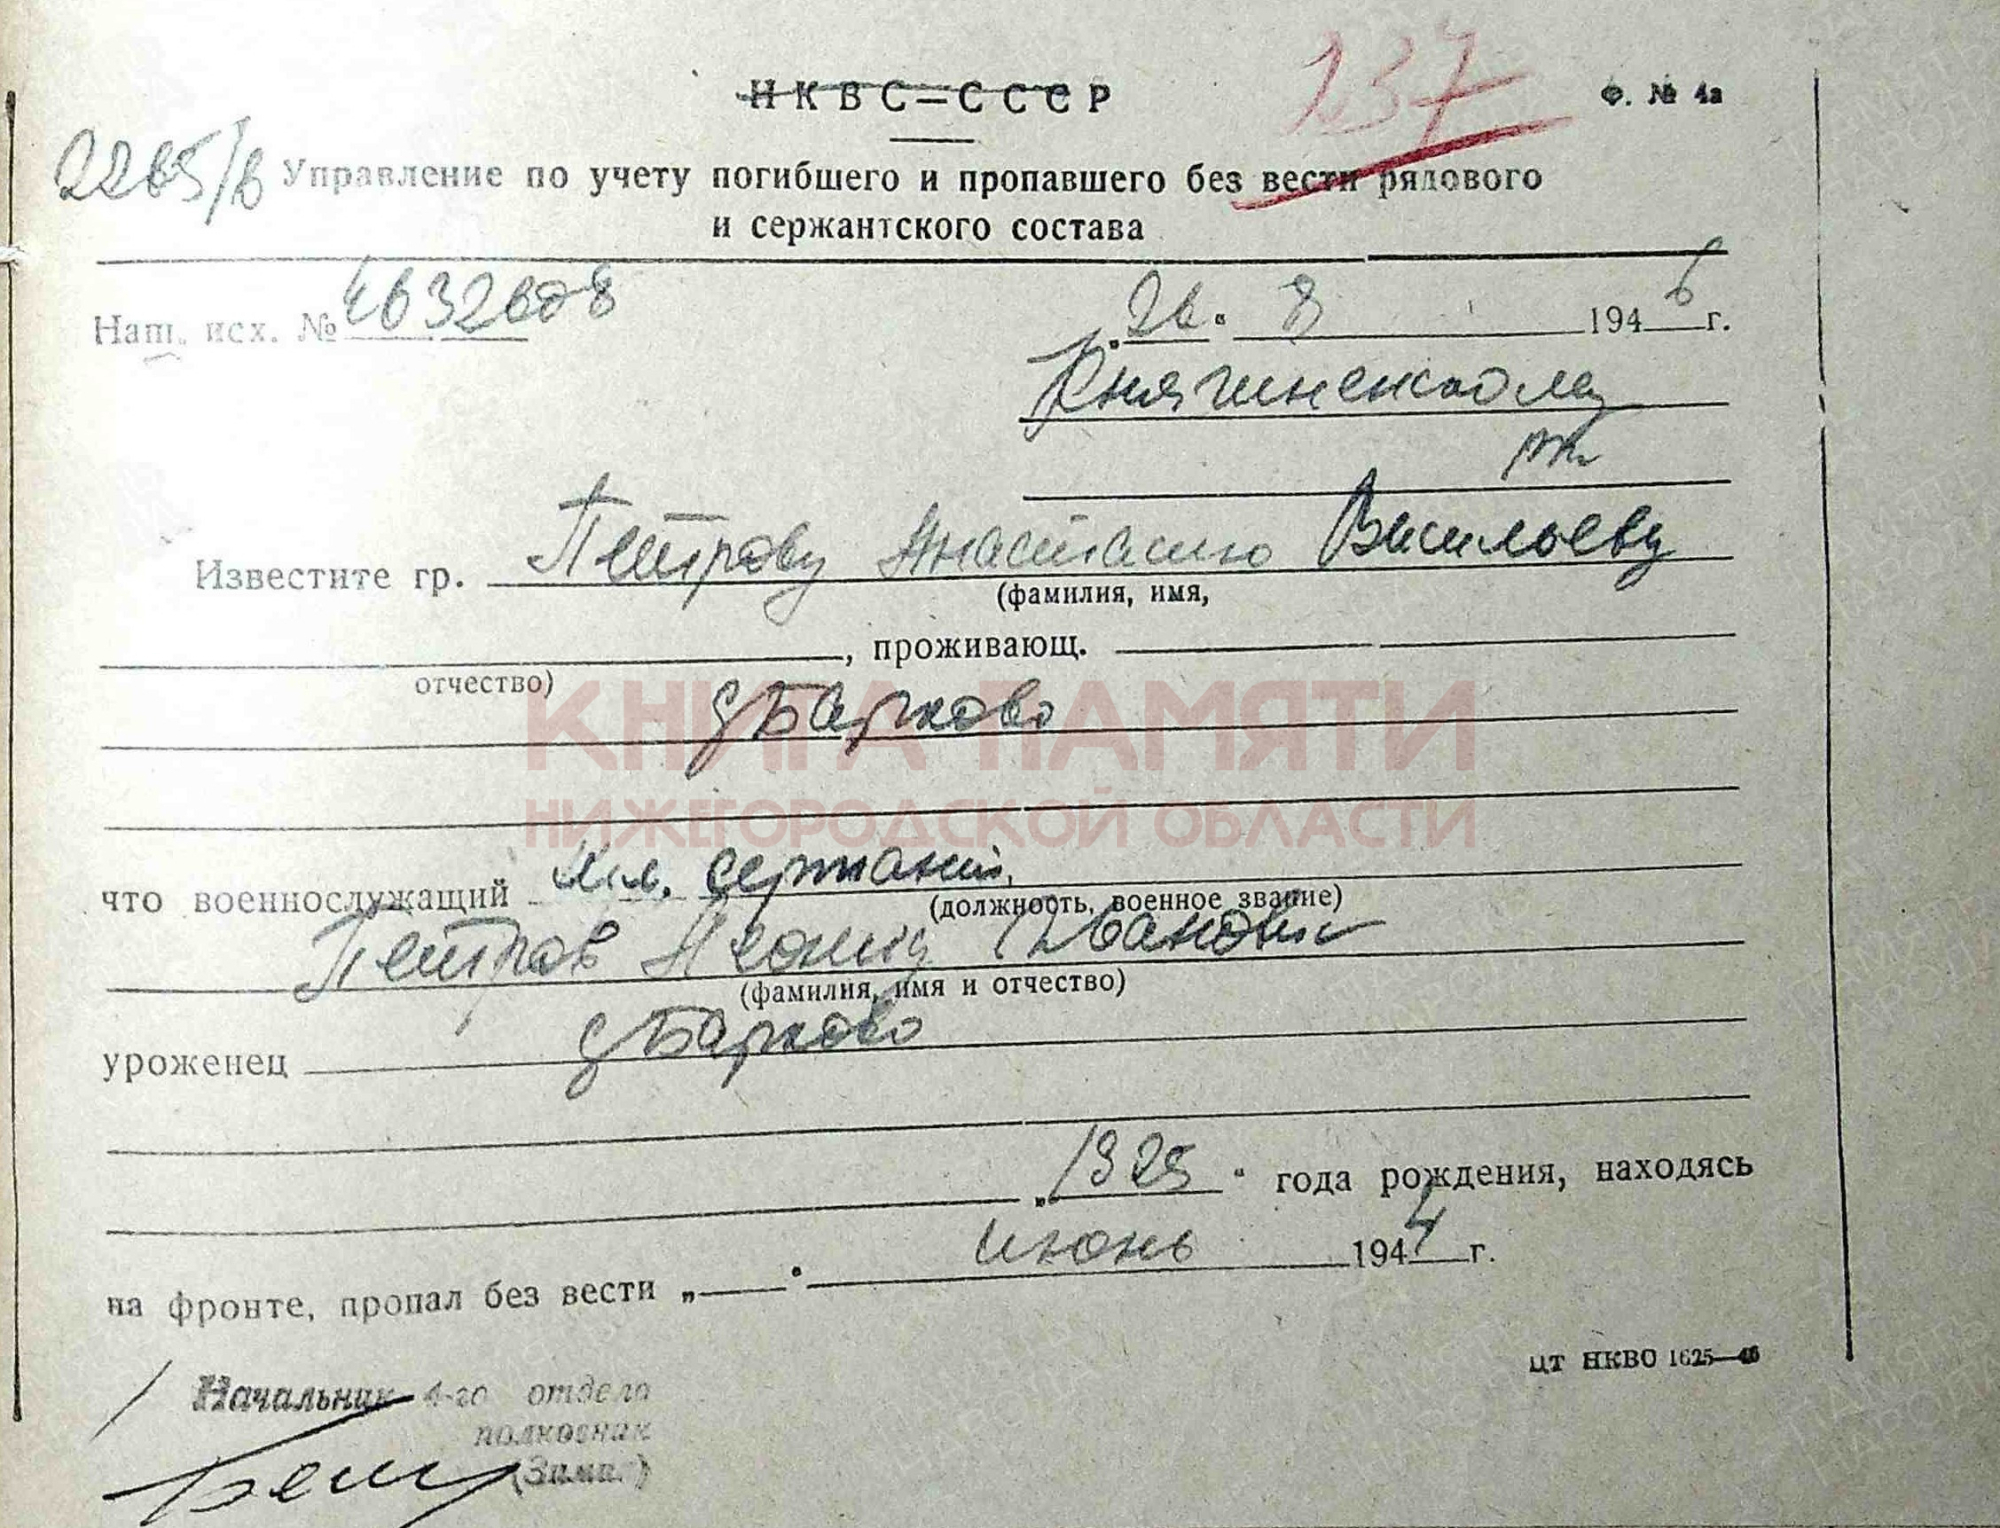 237
НКВС—СССР
Ф. № 4а
Управление по учету погибшего и пропавшего без вести рядового
и сержантского состава
Наш. исх. №
„26." 8 1946 г.
Княгиненскому
рвк
Известите гр. Петрову Анастасию Васильевну
(фамилия, имя,
, проживающ.
отчество)
с Барково
КНИГА ПАМЯТИ
НИЖЕГОРОДСКОЙ ОБЛАСТИ
что военнослужащий мл. сержант
(должность, военное звание)
Петров Леонид Иванович
(фамилия, имя и отчество)
уроженец с Барково
„1925" года рождения, находясь
на фронте, пропал без вести „ " июнь 1944 г.
ЦТ НКВО 1625—46
Начальник 4-го отдела
полковник